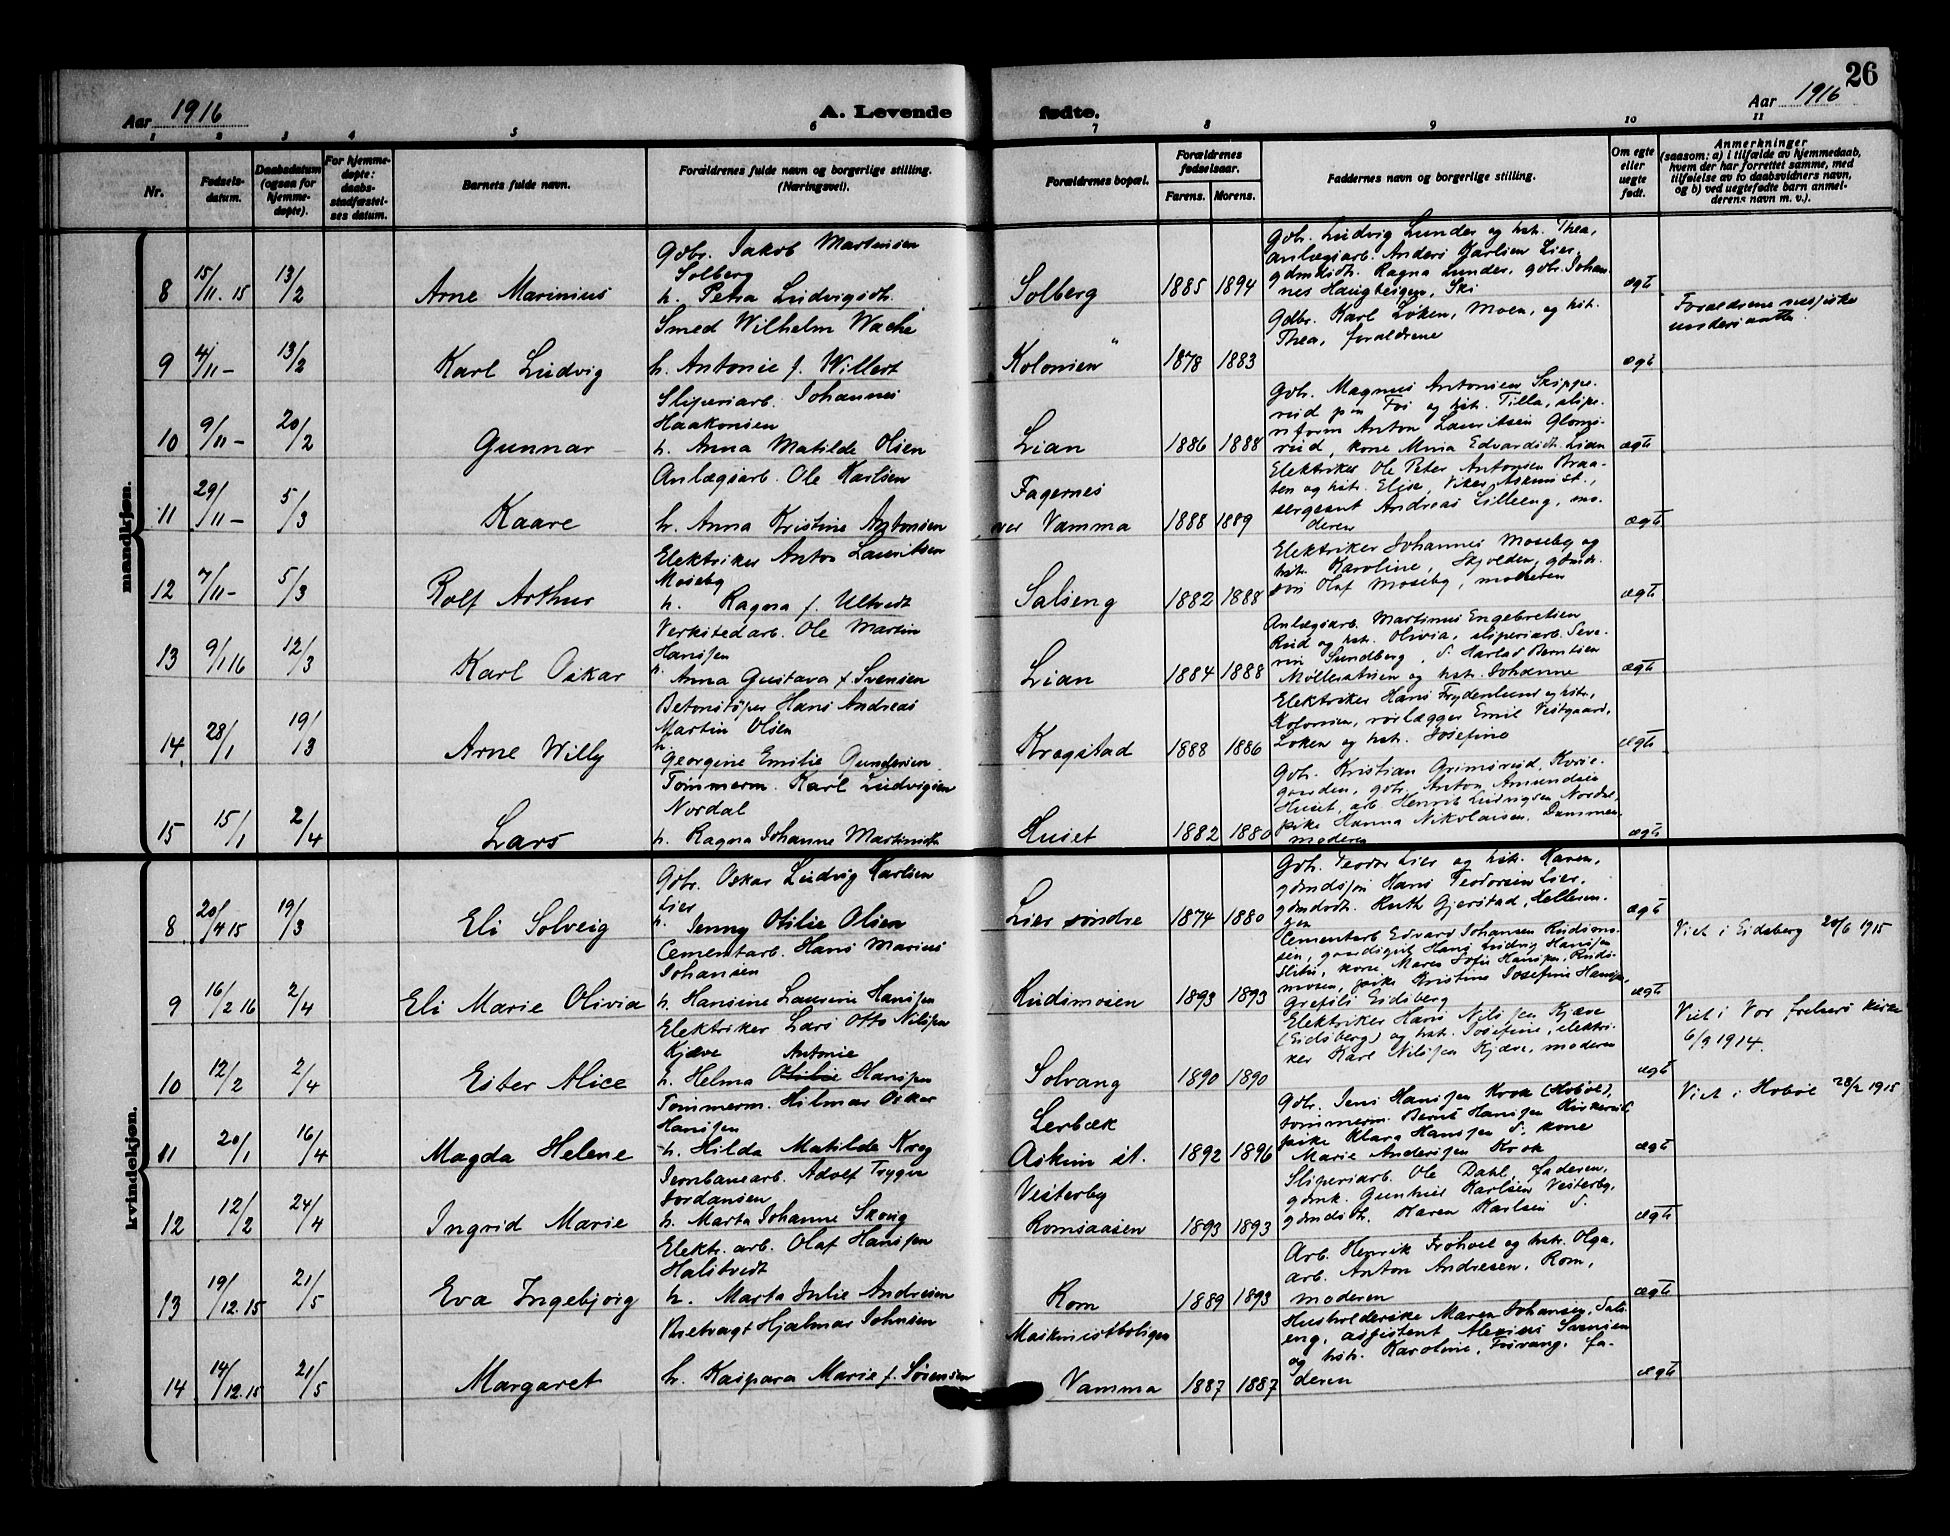 26
Aar 1916
A. Levende
fødte.
Aar 1916
1 2 3 4 5 6 7 8 9 10 11
Nr.
Fødsels-
datum.
Daabsdatum
(ogsaa for
hjemme-
døpte).
For hjemme-
døpte:
daabs-
stadfæstel-
ses datum.
Barnets fulde navn.
Forældrenes fulde navn og borgerlige stilling.
(Næringsvei).
Forældrenes bopæl.
Forældrenes
fødselsaar.
Farens. Morens.
Faddernes navn og borgerlige stilling.
Om egte
eller
uegte
født.
Anmerkninger
(saasom: a) i tilfælde av hjemmedaab,
hvem der har forrettet samme, med
tilføielse av to daabsvidners navn,
og b) ved uegtefødte barn anmel-
derens navn m. v.).
mandkjøn.
8 15/11. 15 13/2 Arne Marinius
Gdbr. Jakob Martinsen
Solberg
h. Petra Ludvigsdt.
Solberg 1885 1894
Gdbr. Ludvig Lunder og hst. Thea,
anlægsarb. Anders Karlsen Lier,
gdmdsdt. Ragna Lunder, gdbr. Johan-
nes Haugteigen, Ski
ægte
9 4/11 - 13/2 Karl Ludvig
Smed Wilhelm Wache
h. Antonie f. Willert
Kolonien 1878 1883
Gdbr. Karl Løken, Moen, og hst.
Thea, forældrene
ægte
Forældrene russiske
undersaatter
10 9/11 - 20/2 Gunnar
Sliperiarb. Johannes
Haakonsen
h. Anna Matilde Olsen
Lian 1886 1888
Gdb. Magnus Antonsen Skippe-
rud paa Foi og hst. Tilla, slipe-
riform Anton Lauritsen Gloms-
rud, kone Mina Edvardsdt. Lian
ægte
11 29/11 - 5/3 Kaare
Anlægsarb. Ole Karlsen
h. Anna Kristine Antonsen
Fagernes
ver Vamma 1888 1889
Elektriker Ole Peter Antonsen Braa-
ten og hst. Elise, Viker Askim st.,
sergeant Andreas Lilleeng, mo-
deren
ægte
12 7/11 - 5/3 Rolf Arthur
Elektriker Anton Lauritsen
Moseby
h. Ragna f. Ultvedt
Salseng 1882 1888
Elektriker Johannes Moseby og
hst. Karoline, Skjolden, gdmds.
søn Olaf Moseby, moderen
ægte
13 9/1 16 12/3 Karl Oskar
Verkstedarb. Ole Martin
Hansen
h. Anna Gustava f. Svensen
Lian 1884 1888
Anlægsarb. Martinus Engebretsen
Rud og hst. Olivia, sliperiarb. Seve-
rin Sundberg, S. Harlad Berntsen
Møllerstuen og hst. Johanne
ægte
14 28/1 19/3 Arne Willy
Betonstøper Hans Andreas
Martin Olsen
h.
Georgine Emilie Gundersen
Kragstad 1888 1886
Elektriker Hans Frydenlund og hst.,
Kolonien, rørlægger Emil Vestgaard,
Løken og hst. Josefine
ægte
15 15/1 2/4 Lars
Tømmerm. Karl Ludvigsen
Nordal
h. Ragna Johanne Martinsdt.
Huset 1882 1880
Gdb. Kristian Grimsrud, Korse-
gaarden, gdb. Anton Amundsen
Huset, arb. Henrik Ludvigsen Nordal,
pike Hanna Nikolaisen, Dammen,
moderen
ægte
kvindekjøn.
8 20/4 15 19/3 Eli Solveig
Gdbr. Oskar Ludvig Karlsen
Lier
h. Jenny Otilie Olsen
Lier søndre 1874 1880
Gdb. Teodor Lier og hst. Karen,
gdmdsøn Hans Teodorsen Lier,
gdmdsdt. Ruth Gjerstad,
ægte
Viet i Eidsberg 20/6 1915
9 16/2 16 2/4 Eli Marie Olivia
Cementarb. Hans Marius
Johansen
h. Hansine Laurine Hansen
Rudsmosen 1893 1893
Cementarb Edvard Johansen Rudsmo-
sen, gaardsgut Hans Ludvig Hansen
Slitu, kone Maren Sofie Hansen, Ruds-
mosen, pike Kristine Josefine Hansen,
Grefsli Eidsberg
ægte
Viet i Vor frelsers kirke
6/9 1914.
10 12/2 2/4 Ester Alice
Elektriker Lars Otto Nilsen
Kjæve
Antonie
h. Helma Otilie Hansen
Solvang 1890 1890
Elektriker Hans Nilsen Kjæve
(Eidsberg) og hst. Josefine, elektri-
ker Karl Nilsen Kjæve, moderen
ægte
Viet i Hobøl 28/2 1915
11 20/1 16/4 Magda Helene
Tømmerm. Hilmar Oskar
Hansen
h. Hilda Matilde Krog
Lerbæk
Askim st. 1892 1896
Gdb. Jens Hansen Krok (Hobøl),
tømmerm. Bernt Hansen Kirkerud,
pike Klara Hansen S. kone
Marie Andersen Krok
ægte
12 12/2 24/4 Ingrid Marie
Jernbanearb. Adolf Trygve
Jordansen
h. Marta Johanne Skoug
Vesterby
Romsaasen 1893 1893
Sliperiarb. Ole Dahl, faderen,
gdmk. Gunhild Karlsen Vesterby,
gdmdsdt. Karen Karlsen S.
ægte
13 19/12.15 21/5 Eva Ingebjørg
Elektr. arb. Olaf Hansen
Halstvedt
h. Marta Julie Andresen
Rom 1889 1893
Arb. Henrik Frohoel og hst. Olga,
arb. Anton Andresen, Rom,
moderen
ægte
14 14/12.15 21/5 Margaret
Bretvagt Hjalmar Johnsen
h. Kaspara Marie f. Sørensen
Maskinistboligen
Vamma 1887 1887
Husholderske Maren Johansen, Sals-
eng, assistent Alexius Svensen
og hst. Karoline, Frivang, fa-
deren
ægte